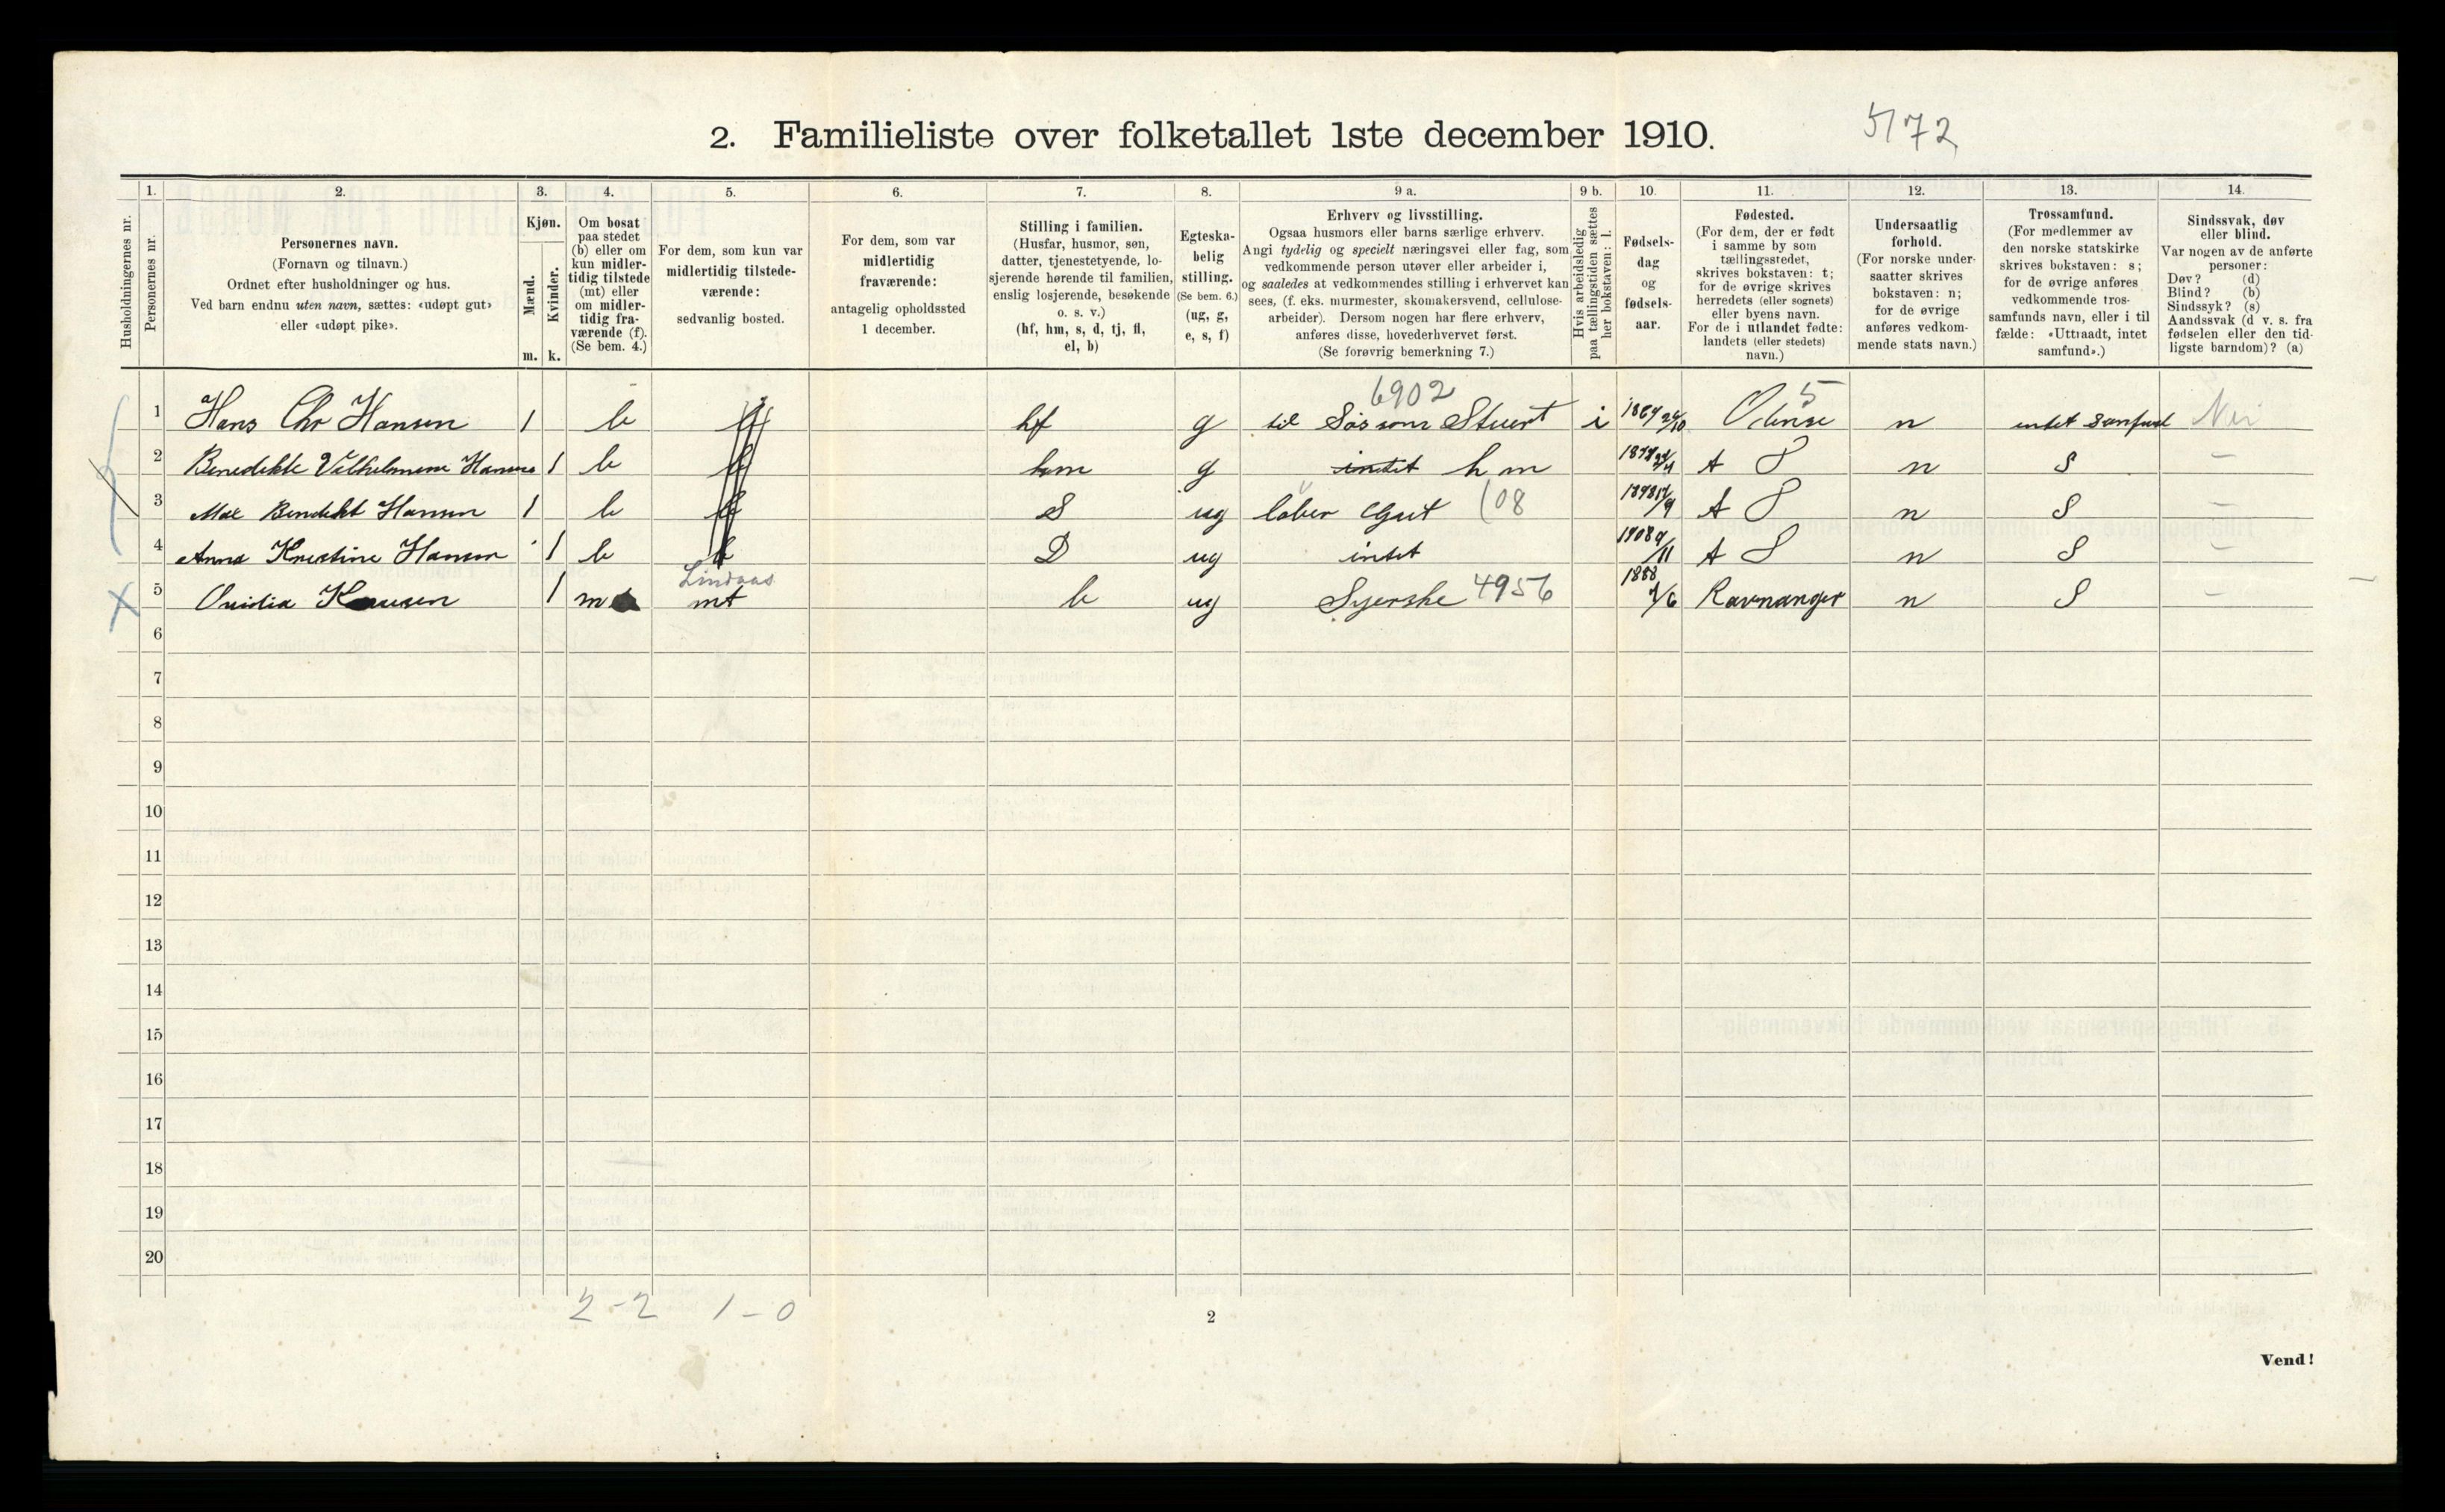 2. Familieliste over folketallet 1ste december 1910.
5172
1. 2. 3. 4. 5. 6. 7. 8. 9 a. 9 b. 10. 11. 12. 13. 14.
Husholdningernes nr.
Personernes nr.
Personernes navn.
(Fornavn og tilnavn.)
Ordnet efter husholdninger og hus.
Ved barn endnu uten navn, sættes: «udøpt gut»
eller «udøpt pike».
Kjøn.
Mænd.
Kvinder.
m. k.
Om bosat
paa stedet
(b) eller om
kun midler-
tidig tilstede
(mt) eller
om midler-
tidig fra-
værende (f).
(Se bem. 4.)
For dem, som kun var
midlertidig tilstede-
værende:
sedvanlig bosted.
For dem, som var
midlertidig
fraværende:
antagelig opholdssted
1 december.
Stilling i familien.
(Husfar, husmor, søn,
datter, tjenestetyende, lo-
sjerende hørende til familien,
enslig losjerende, besøkende
o. s. v.)
(hf, hm, s, d, tj, fl,
el, b)
Egteska-
belig
stilling.
(Se bem. 6.)
(ug, g,
e, s, f)
Erhverv og livsstilling.
Ogsaa husmors eller barns særlige erhverv.
Angi tydelig og specielt næringsvei eller fag, som
vedkommende person utøver eller arbeider i,
og saaledes at vedkommendes stilling i erhvervet kan
sees, (f. eks. murmester, skomakersvend, cellulose-
arbeider). Dersom nogen har flere erhverv,
anføres disse, hovederhvervet først.
(Se forøvrig bemerkning 7.)
Hvis arbeidsledig
paa tællingstiden sættes
her bokstaven: l.
Fødsels-
dag
og
fødsels-
aar.
Fødested.
(For dem, der er født
i samme by som
tællingsstedet,
skrives bokstaven: t;
for de øvrige skrives
herredets (eller sognets)
eller byens navn.
For de i utlandet fødte:
landets (eller stedets)
navn.)
Undersaatlig
forhold.
(For norske under-
saatter skrives
bokstaven: n;
for de øvrige
anføres vedkom-
mende stats navn.)
Trossamfund.
(For medlemmer av
den norske statskirke
skrives bokstaven: s;
for de øvrige anføres
vedkommende tros-
samfunds navn, eller i til
fælde: «Uttraadt, intet
samfund».)
Sindssvak, døv
eller blind.
Var nogen av de anførte
personer:
Døv? (d)
Blind? (b)
Sindssyk? (s)
Aandssvak (d v. s. fra
fødselen eller den tid-
ligste barndom)? (a)
6902 5
1 Hans Chr Hansen 1 b hf g til Søs som Stuert i 24/10 Odense n intet Samfund Nei
2 Benedikte Vilhelmine Hansen 1 b hm g intet hm n S –
3 Max Bendikt Hansen 1 b b S ug løber Gut (08 1898 n S –
4 Anna Kristine Hansen 1 b b D ug intet 1908 9/11 n S –
Lindaas
5 1 mt b ug Syerske 4956 1888 7/6 Ravnanger n S –
6
7
8
9
10
11
12
13
14
15
16
17
18
19
20
2-2 1-0
2
Vend!